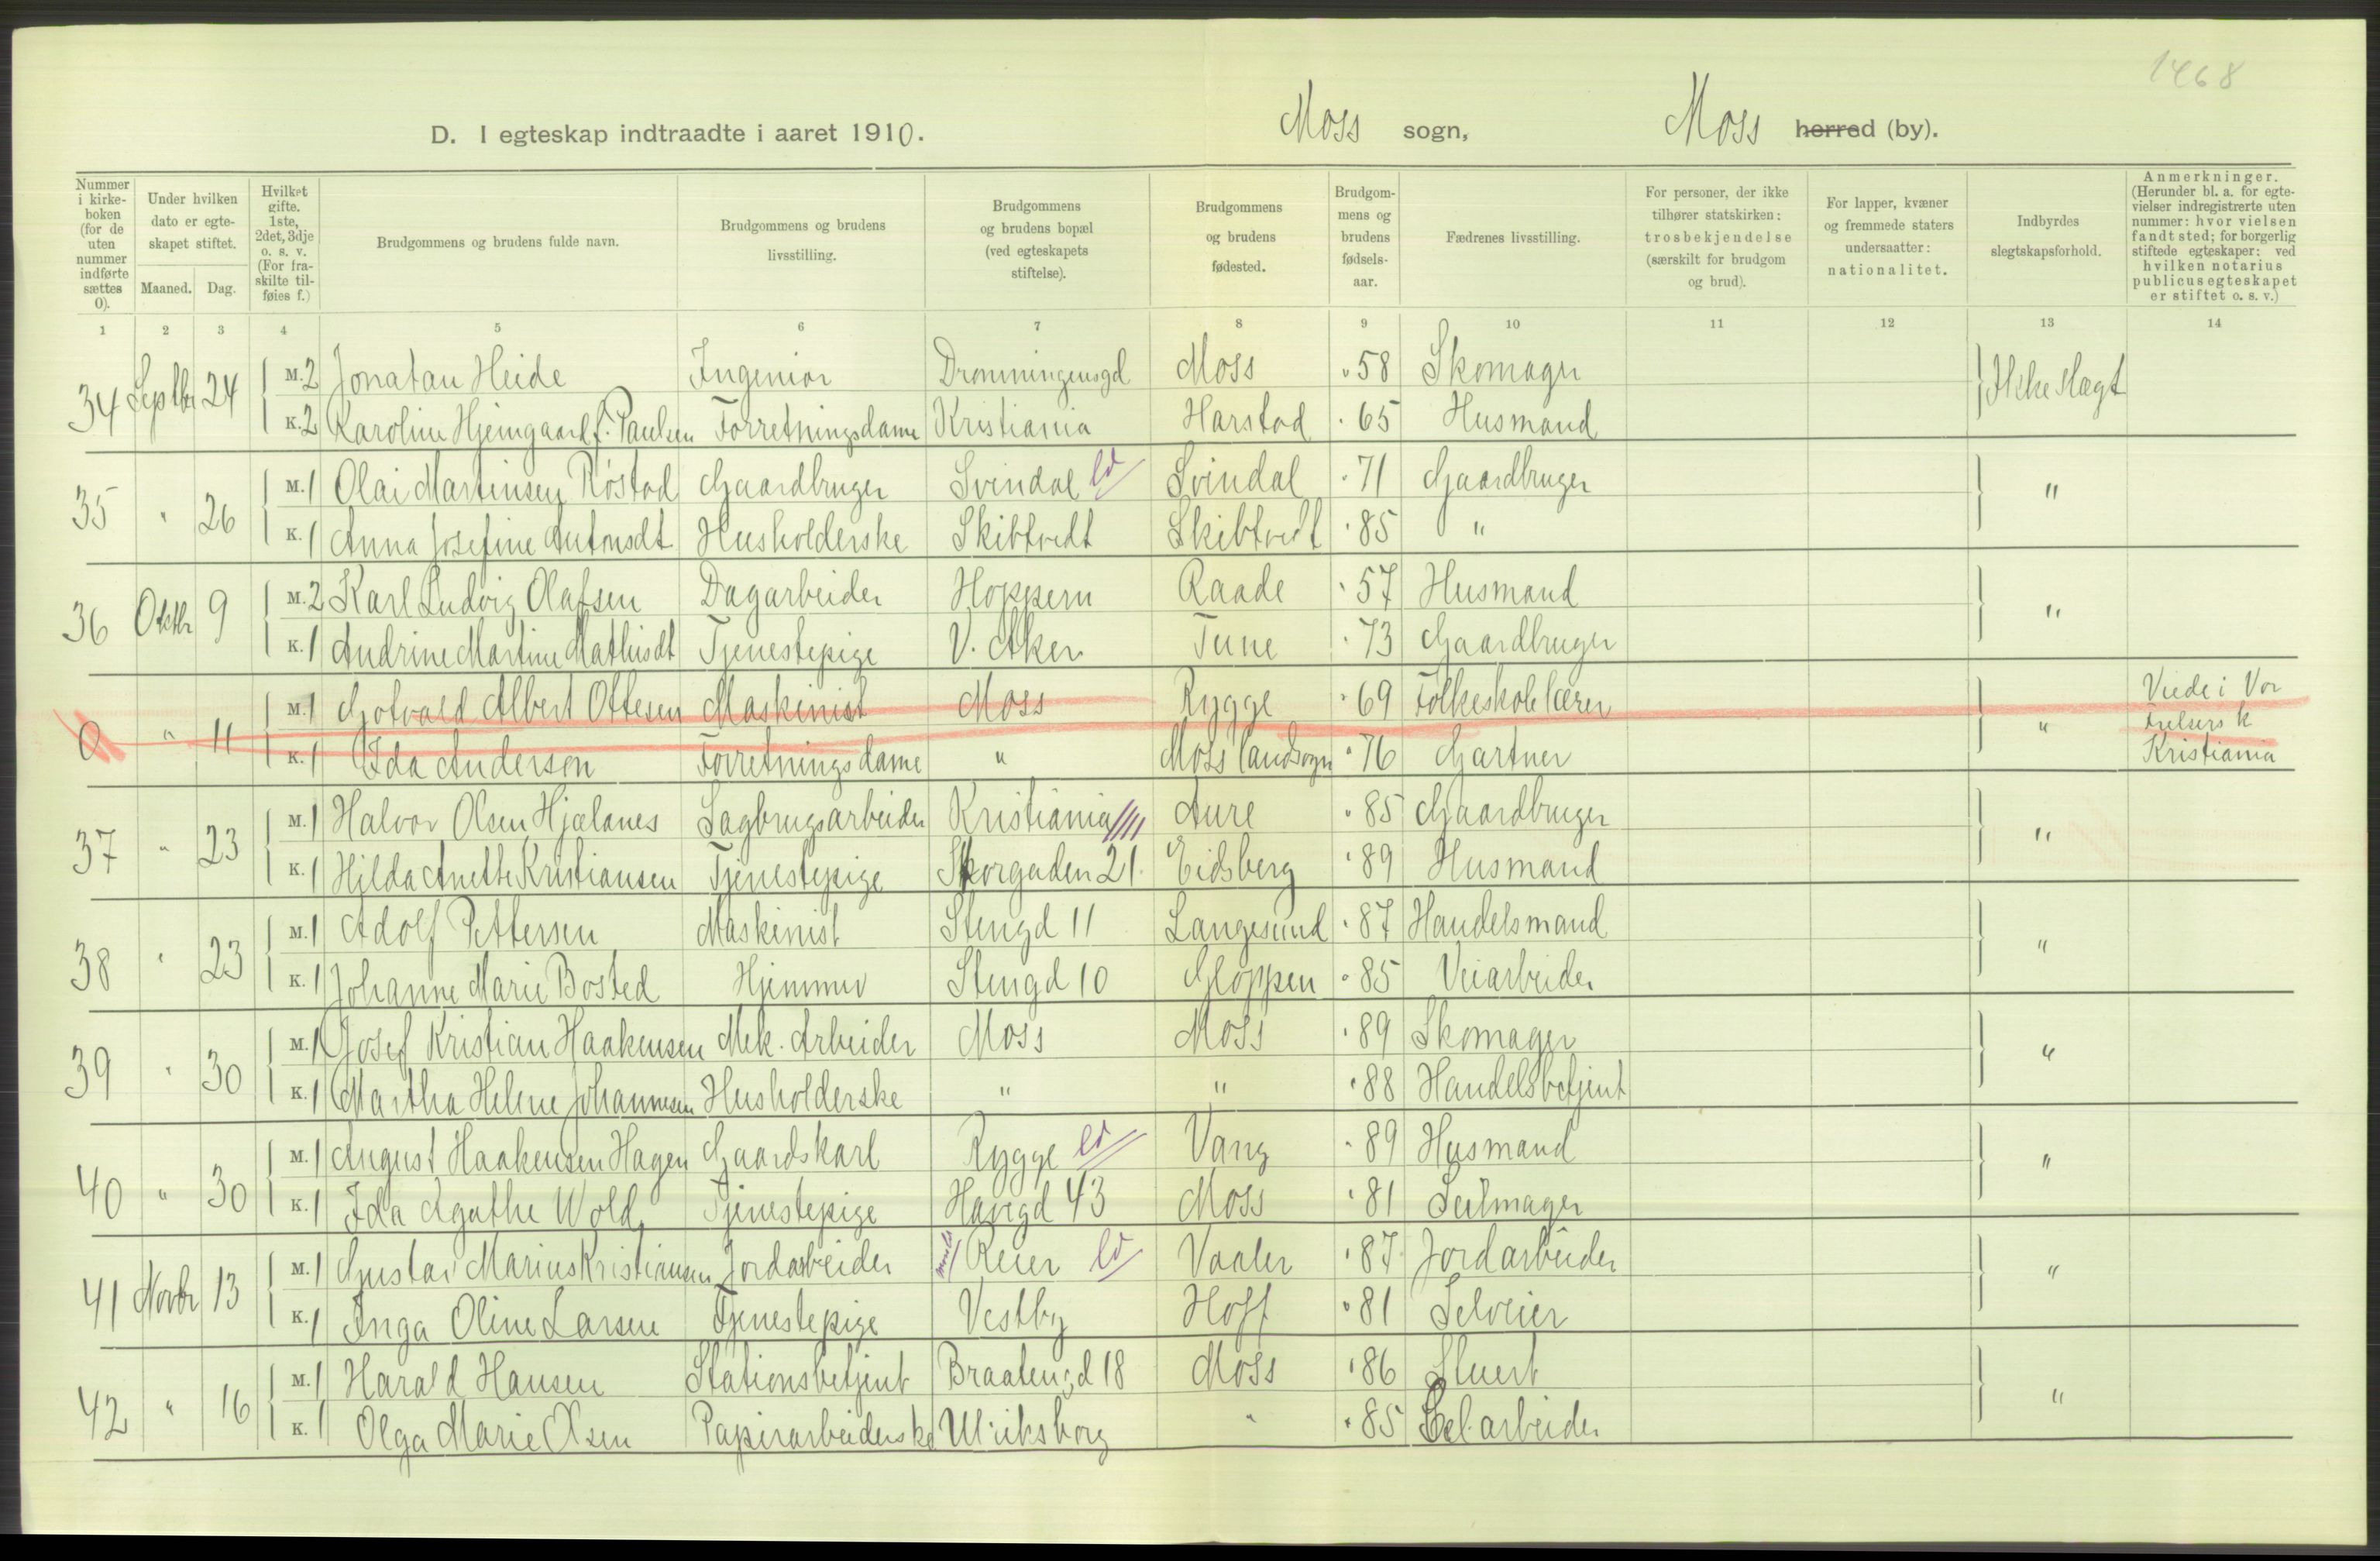 1468
D. I egteskap indtraadte i aaret 1910. Moss sogn, Moss herred (by).
Nummer i kirkeboken (for de uten nummer indførte sættes 0). Under hvilken dato er egteskapet stiftet. Maaned. Dag. Hvilket gifte. 1ste, 2det, 3dje o. s. v. (For fraskilte tilføies f.) Brudgommens og brudens fulde navn. Brudgommens og brudens livsstilling. Brudgommens og brudens bopæl (ved egteskapets stiftelse). Brudgommens og brudens fødested. Brudgommens og brudens fødselsaar. Fædrenes livsstilling. For personer, der ikke tilhører statskirken: trosbekjendelse (særskilt for brudgom og brud). For lapper, kvæner og fremmede staters undersaatter: nationalitet. Indbyrdes slegtskapsforhold. Anmerkninger. (Herunder bl. a. for egtevielser indregistrerte uten nummer: hvor vielsen fandt sted; for borgerlig stiftede egteskaper: ved hvilken notarius publicus egteskapet er stiftet o. s. v.)
1 2 3 4 5 6 7 8 9 10 11 12 13 14
34 Septbr 24 M. 2 Jonatan Heide Ingeniør Dronningensgd Moss 58 Skomager Ikke slægt
K. 2 Karoline Hjemgaard f. Paulsen Forretningsdame Kristiania Harstad 65 Husmand
35 " 26 M. 1 Olai Martinsen Røstad Gaardbruger Svindal ld Svindal 71 Gaardbruger "
K. 1 Anna Josefine Antonsdt Husholderske Skibtvedt Skibtvedt 85 "
36 Oktbr 9 M. 2 Karl Ludvig Olafsen Dagarbeider Hoppern Raade 57 Husmand "
K. 1 Andrine Martine Mathisdt Tjenestepige V. Aker Tune 73 Gaardbruger
0 " 11 M. 1 Gotvald Albert Ottesen Maskinist Moss Rygge 69 Folkeskolelærer " Viede i Vor Frelsers k Kristiania
K. 1 Ida Anderson Forretningsdame " Moss landsogn 76 Gartner
37 " 23 M. 1 Halvor Olsen Hjælanes Sagbrugsarbeider Kristiania Aure 85 Gaardbruger "
K. 1 Hilda Anette Kristiansen Tjenestepige Skorgaden 21. Eidsberg 89 Husmand
38 " 23 M. 1 Adolf Pettersen Maskinist Stengd 11 Langesund 87 Handelsmand "
K. 1 Johanne Marie Bosted Hjemme Stengd 10 Gloppen 85 Veiarbeider
39 " 30 M. 1 Josef Kristian Haakensen Mek. Arbeider Moss Moss 89 Skomager "
K. 1 Martha Helene Johannesen Husholderske " " 88 Handelsbetjent
40 " 30 M. 1 August Haakensen Hagen Gaardskarl Rygge ld Vang 89 Husmand "
K. 1 Ida Agathe Wold Tjenestepige Havegd 43 Moss 81 Seilmager
41 Novbr 13 M. 1 Gustav Marius Kristiansen Jordarbeider Reier ld Vaaler 87 Jordarbeider "
K. 1 Inga Oline Larsen Tjenestepige Vestby Hoff 81 Selveier
42 " 16 M. 1 Harald Hansen Stationsbetjent Braatengd 18 Moss 86 Stuert "
K. 1 Olga Marie Olsen Papirarbeiderske Ulriksborg " 85 arbeider